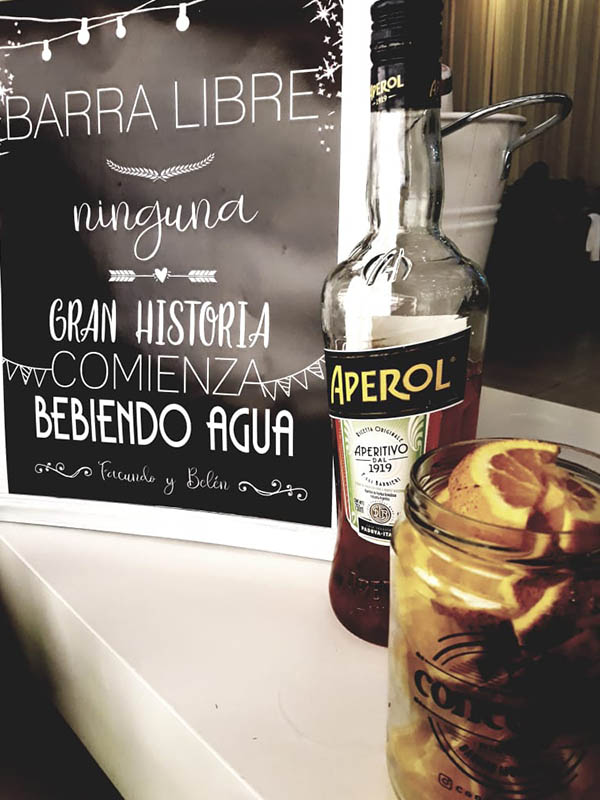 BARRA LIBRE
ninguna
GRAN HISTORIA
COMIENZA
BEBIENDO AGUA
Facundo y Belén
APEROL
1919
APEROL
RICETTA ORIGINALE
APERITIVO
DAL
1919
BARBIERI
PADOVA-ITA
APER